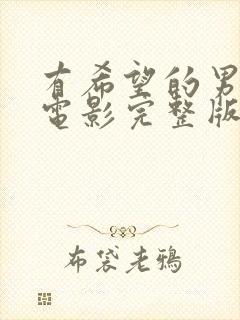 有希望的男
电影完整版
布袋老鸦